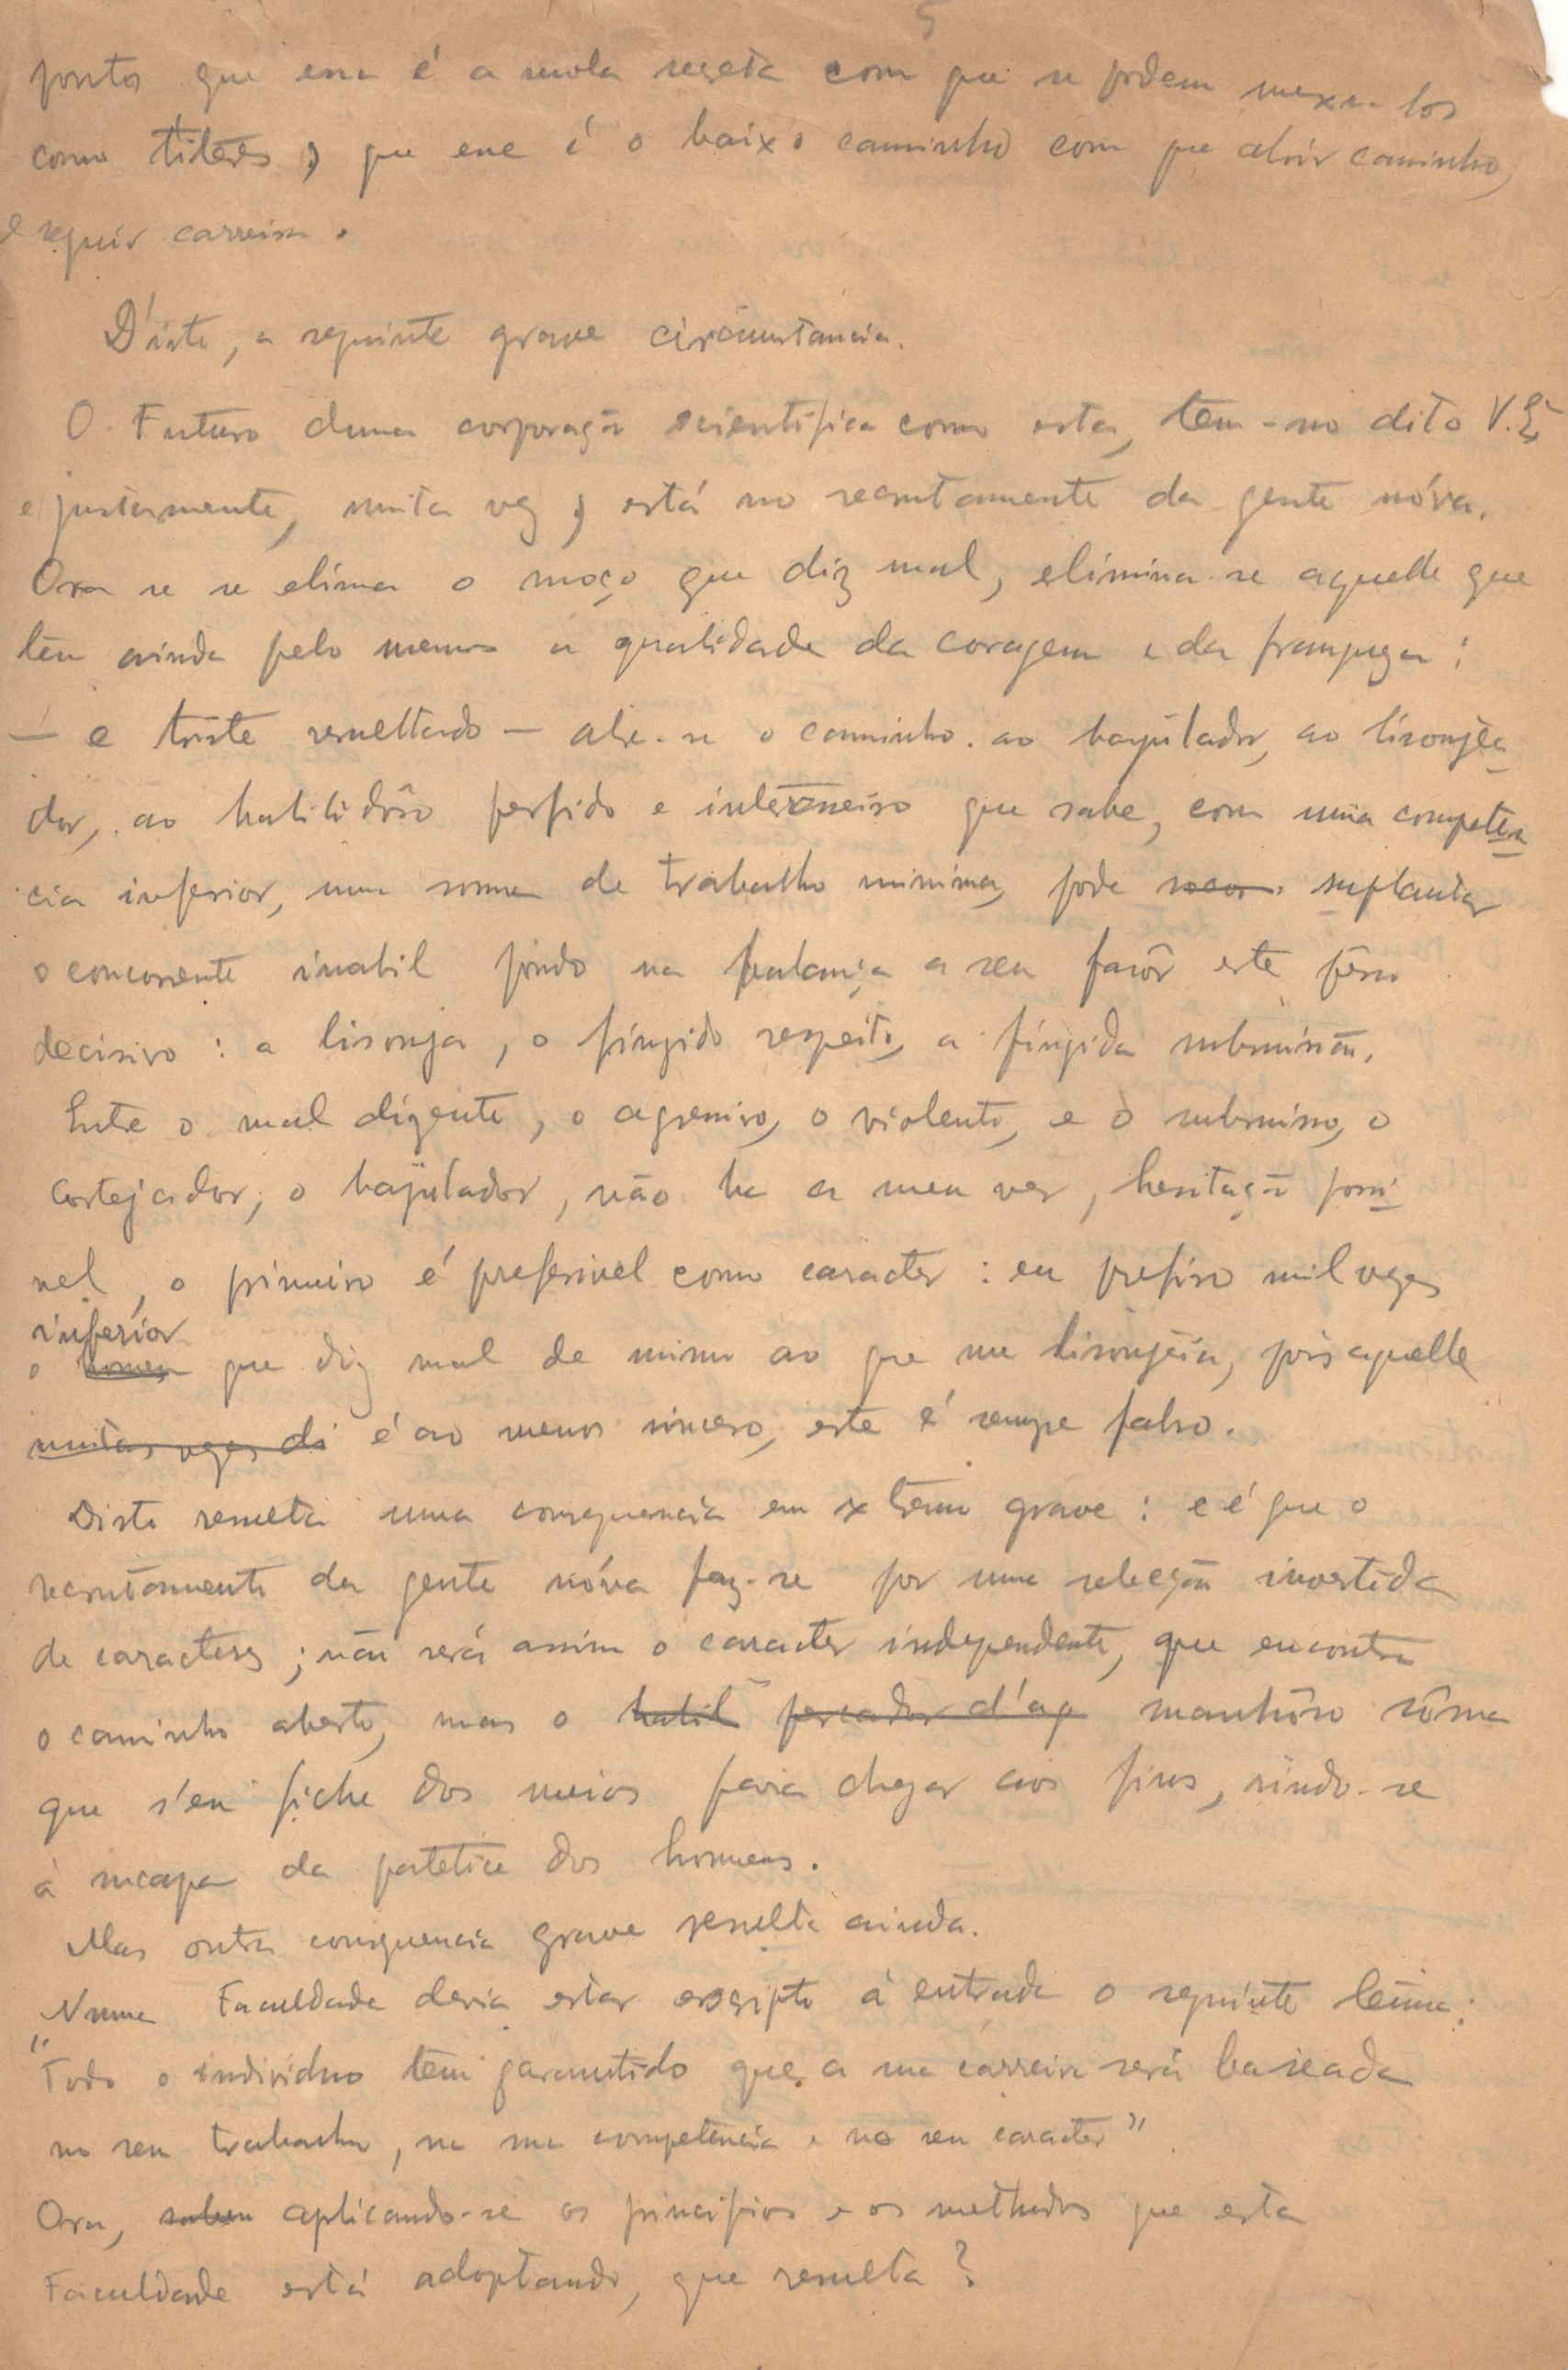 5
pontos que essa é a mola secreta com que se podem mexe-los
como titéres, que esse é o baixo caminho com que abrir caminho,
e seguir carreira.
D'isto, a seguinte grave circumstancia.
O Futuro duma corporação scientifica como esta, tem-no dito V. Ex
e justamente, muita vez, está no recrutamento da gente nóva.
Ora se se elima o moço que diz mal, elimina-se aquelle que
tem ainda pelo menos a qualidade da coragem e da franqueza:
— e triste resultado — abre-se o caminho ao bajulador, ao lisongea
dor, ao habilidôso perfido e interesseiro que sabe, com uma competen
cia inferior, uma somma de trabalho minima, pode suplantar
o concorrente inabil pondo na balança a seu favôr este pêso
decisivo: a lisonja, o fingido respeito, a fingida submissão.
Entre o mal dizente, o agressivo, o violento, e o submisso, o
cortejador, o bajulador, não ha a meu ver, hesitação possi
vel, o primeiro é preferivel como caracter: eu prefiro mil vezes
inferior
o homem que diz mal de mimo ao que me lisongeia, pois aquelle
muitas vezes di é ao menos sincero, este é sempre falso.
Disto resulta uma consequencia em extremo grave: e é que o
recrutamento da gente nóva faz-se por uma selecção invertida
de caracteres; não será assim o caracter independente, que encontra
o caminho aberto, mas o habil pescador d'ag manhôso sôma
que s'en fiche dos meios para chegar aos fins, rindo-se
à socapa da patetice dos homens.
Mas outra consequencia grave resulta ainda.
Numa Faculdade devia estar escripto á entrada o seguinte lema:
"Todo o individuo tem garantido que a sua carreira será baseada
no seu trabalho, na sua competencia e no seu caracter"
Ora, aplicando-se os principios e os methodos que esta
Faculdade está adoptando, que resulta?